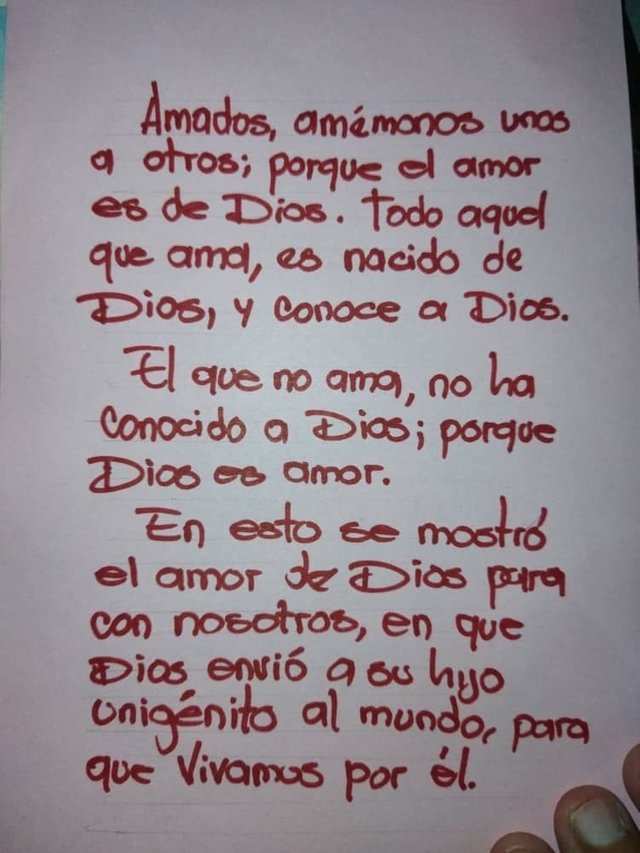 Amados, amémonos unos
a otros; porque el amor
es de Dios. Todo aquel
que ama, es nacido de
Dios, y conoce a Dios.
El que no ama, no ha
conocido a Dios; porque
Dios es amor.
En esto se mostró
el amor de Dios para
con nosotros, en que
Dios envió a su hijo
unigénito al mundo, para
que vivamos por él.